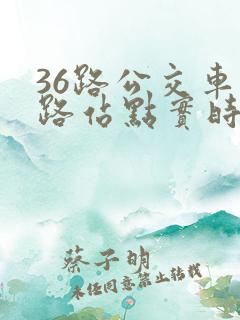 36路公交車
路佔點實時
蔡子明
未任同意禁止转载